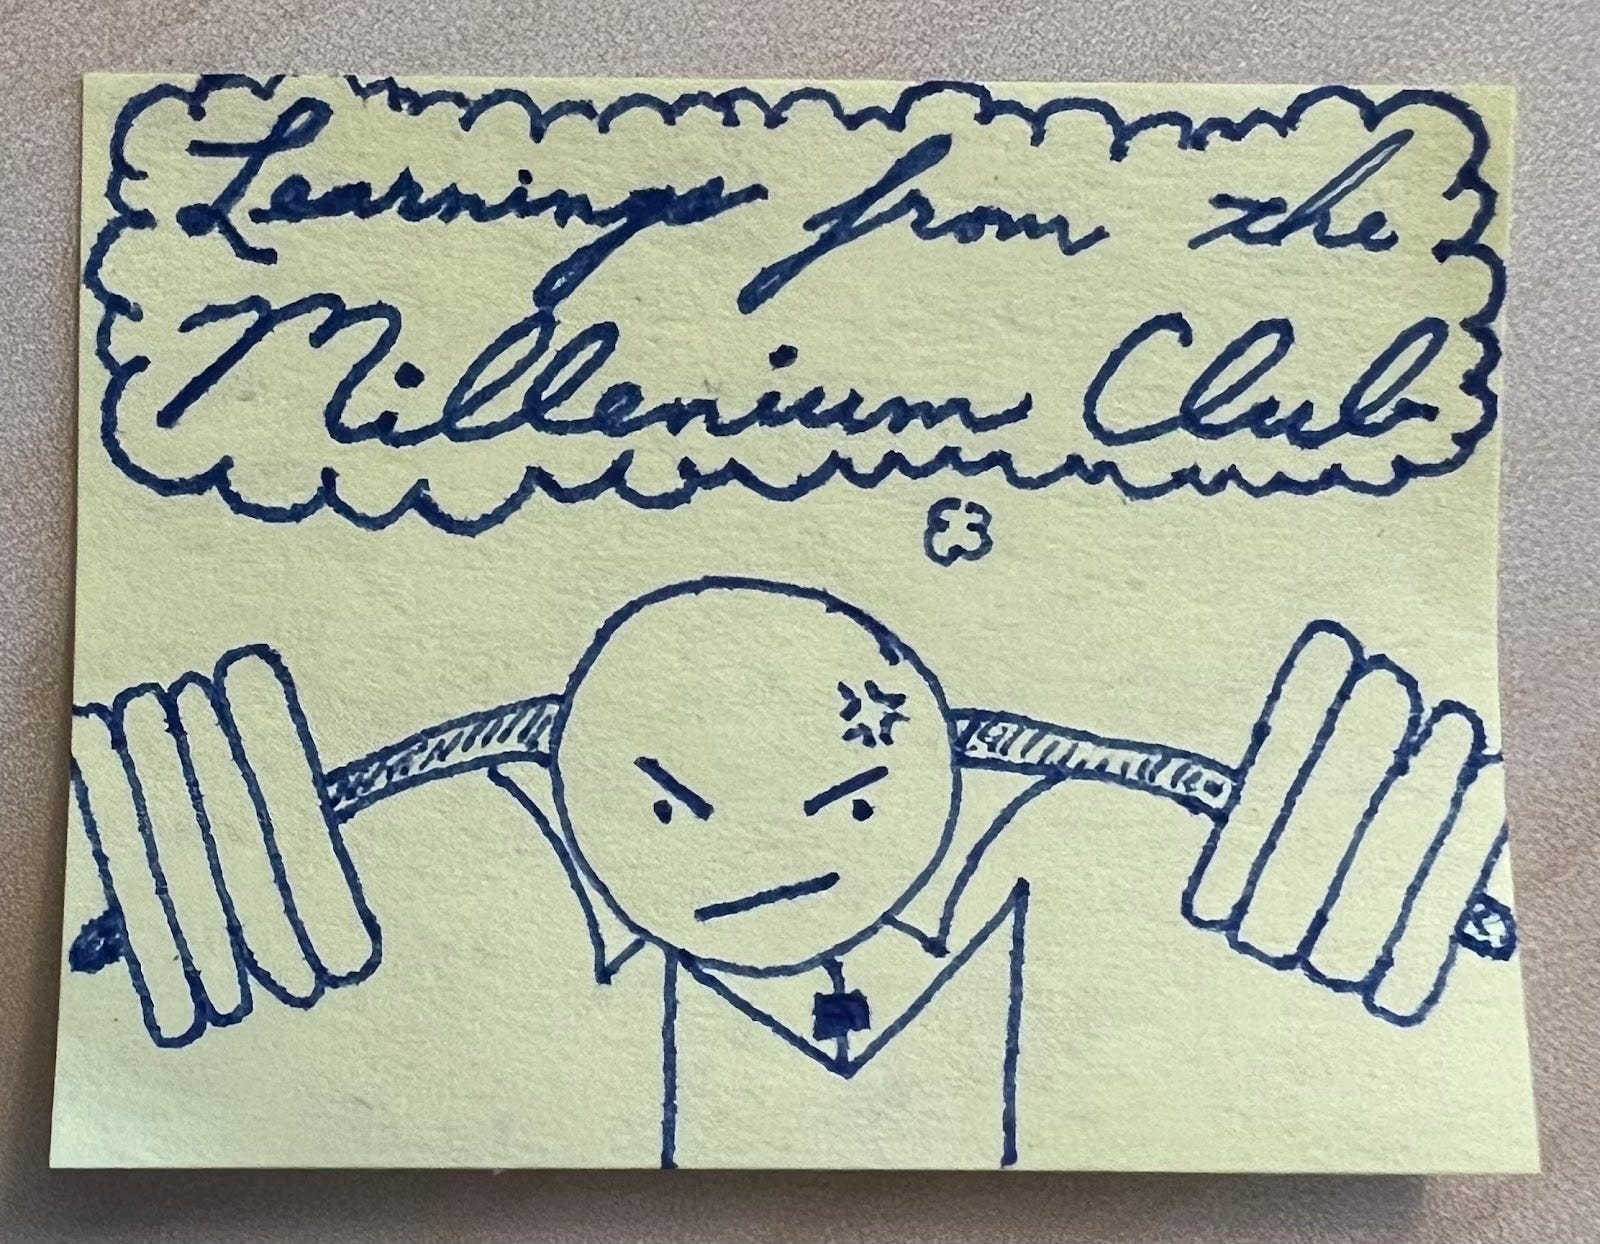 Learnings from the
Millenium Club